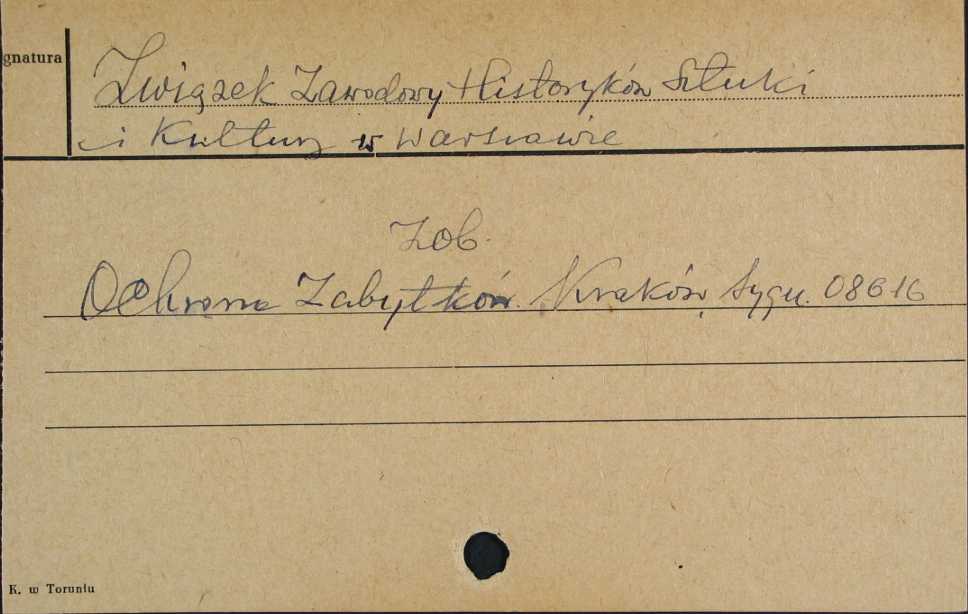 gnatura
Związek Zawodowy Historyków Sztuki
i Kultury w Warszawie
Zob.
Ochrona Zabytków. Kraków, Sygn. 08616
K. w Toruniu